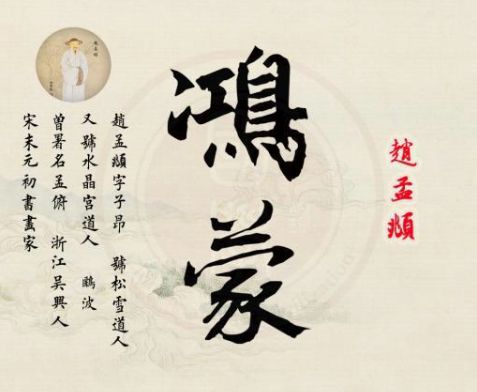 趙孟頫
鴻蒙
趙孟頫字子昂 號松雪道人
又號水晶宮道人 鷗波
曾署名孟俯 浙江吳興人
宋末元初書畫家